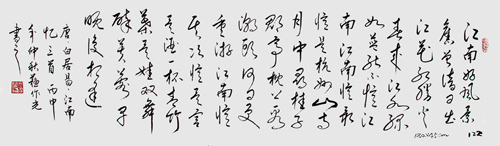 江南好风景
旧曾谙日出
江花红胜火
春来江水绿
如蓝能不忆江
南江南忆最
忆是杭州山寺
月中寻桂子
郡亭枕上看
潮头何日更
重游江南忆
其次忆吴宫
吴酒一杯春竹
叶吴娃双舞
醉芙蓉早
晚复相逢
唐白居易江南
忆三首丙申
年仲秋
书